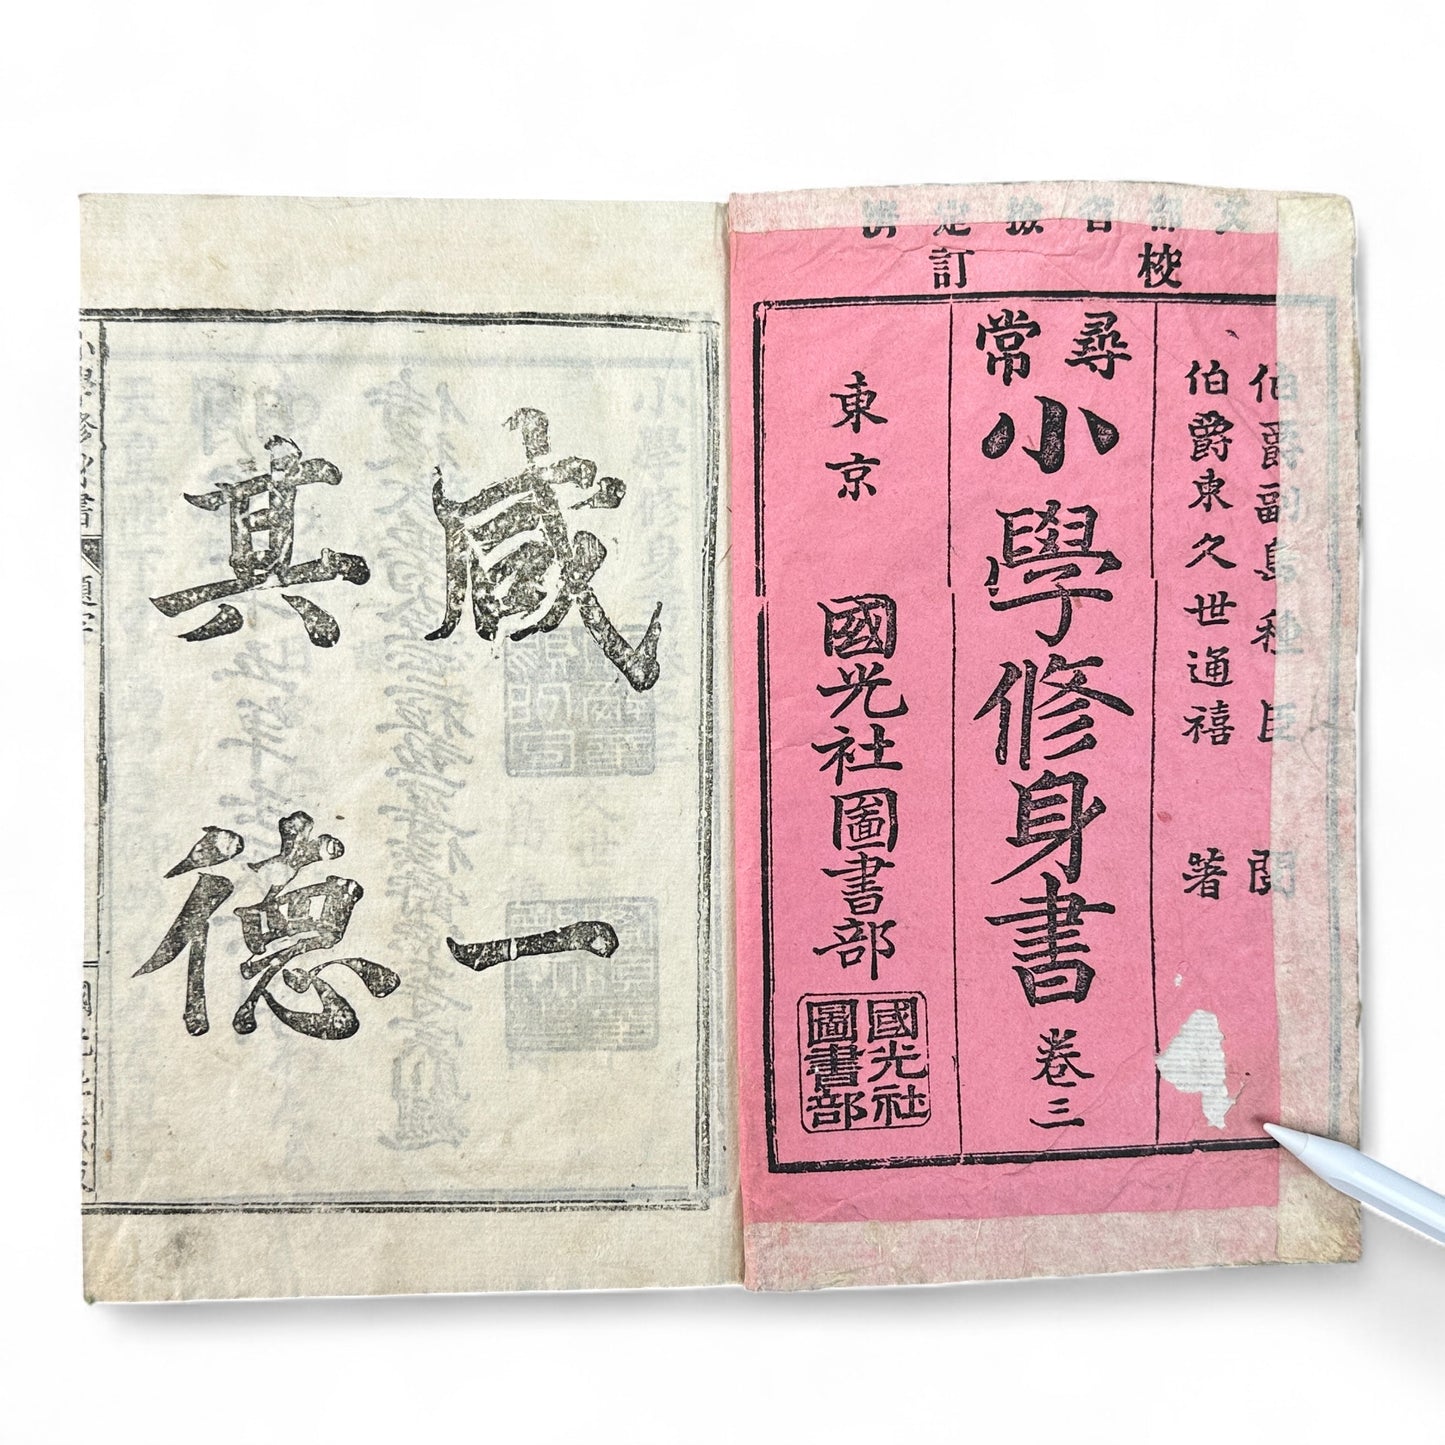 文部省檢定濟
校訂
伯爵副島種臣閱
伯爵東久世通禧著
尋常
小學修身書卷三
東京
國光社圖書部
國光社
圖書部
咸一
其德
小學修身書
題字